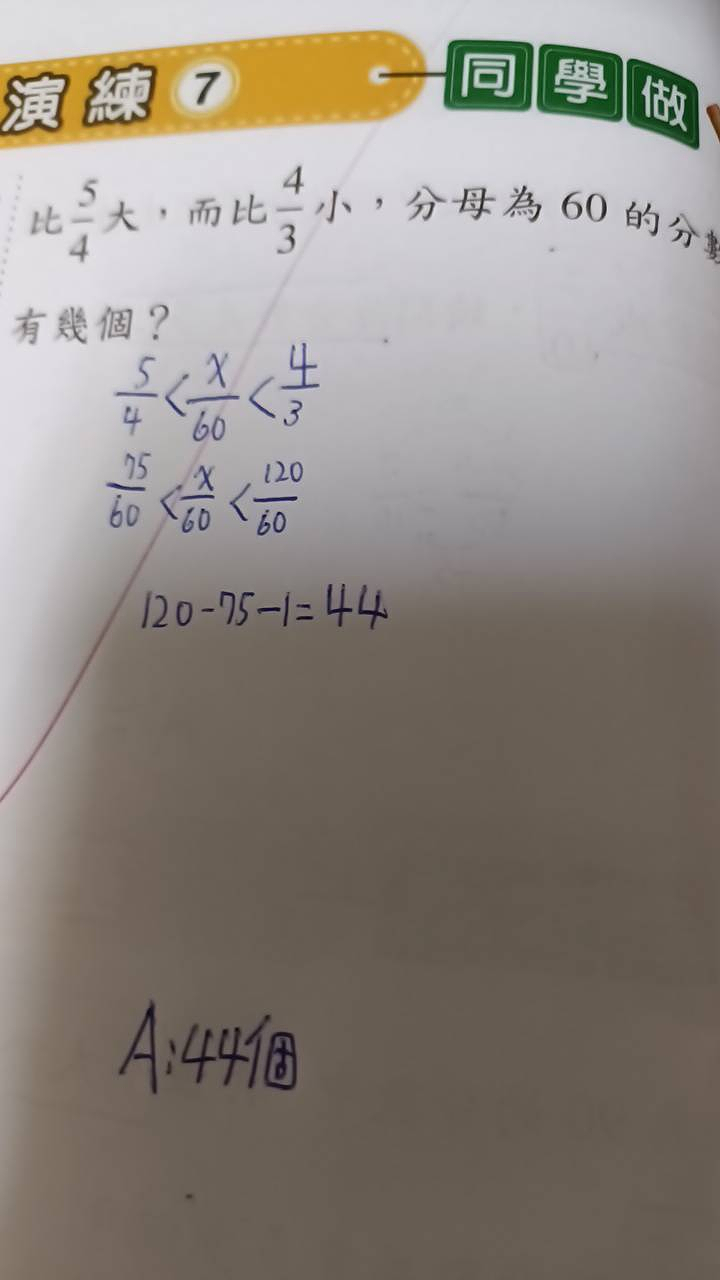 演練 7 同學做
比 5/4 大，而比 4/3 小，分母為 60 的分數
有幾個？
5/4 < x/60 < 4/3
75/60 < x/60 < 120/60
120-75-1=44
A:44個